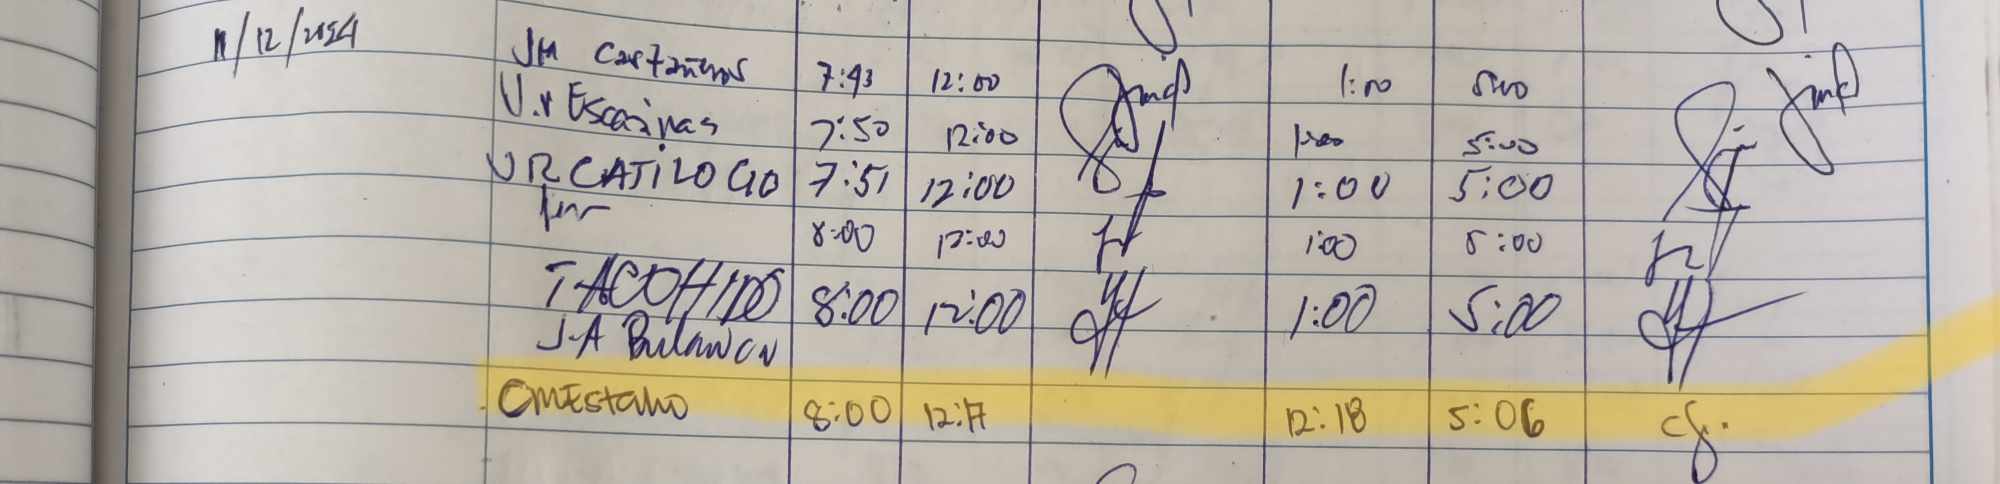 11/12/2024
JM Castañeros 7:43 12:00 1:00 5:00
J.V Escarinas 7:50 12:00 1:00 5:00
JR CATILOGO 7:51 12:00 1:00 5:00
8:00 12:00 1:00 5:00
8:00 12:00 1:00 5:00
J.A
CMEstaño 8:00 12:17 12:18 5:06